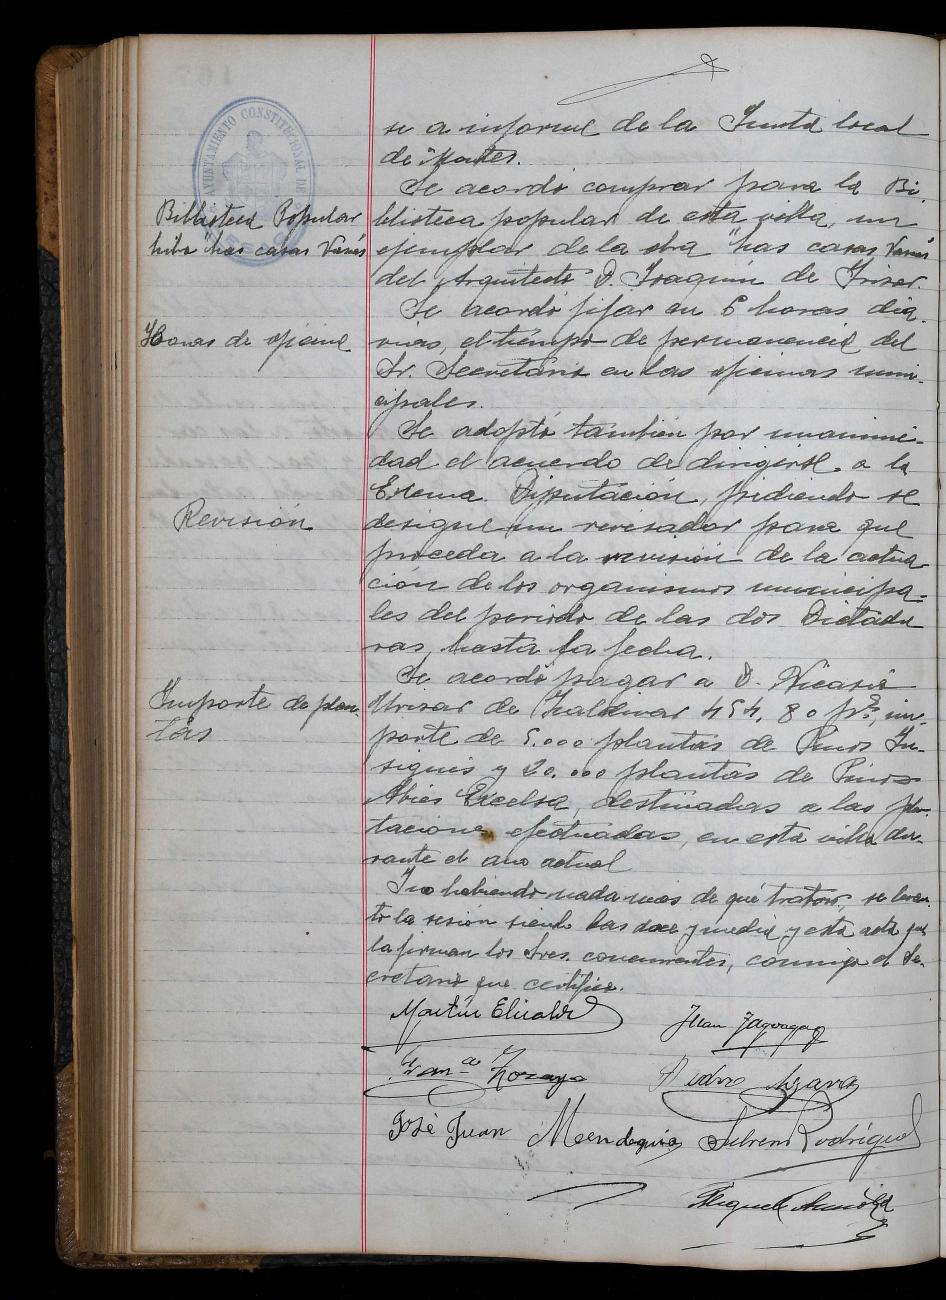 se a informe de la Junta local
de Montes.
Biblioteca Popular
libro "Las casas Vascas
Se acordó comprar para la Bi
blioteca popular de esta villa, un
ejemplar de la obra "Las casas Vascas
del Arquitecto D. Joaquín de Irizar.
Horas de oficina
Se acordó fijar en 6 horas dia-
rias, el tiempo de permanencia del
Sr. Secretario en las oficinas muni-
cipales.
Revisión
Se adoptó también por unanimi-
dad el acuerdo de dirigirse a la
Exma Diputación, pidiendo se
designe un revisador para que
proceda a la revisión de la actua
ción de los organismos municipa-
les del periodo de las dos Dictadu
ras, hasta la fecha.
Importe de plan-
tas
Se acordó pagar a D. Nicasio
Urizar de Zaldivar 454,80 pts, im-
porte de 5.000 plantas de Pinos In-
signis y 20.000 plantas de Pinos
Abies Excelsa, destinadas a las plan-
taciones efectuadas, en esta villa du-
rante el ano actual
Y no habiendo nada mas de qué tratar, se levan-
tó la sesión siendo las doce y media y esta acta que
la firman los Sres. concurrentes, conmigo el Se-
cretario que certifico.
Martín Elizalde
Juan
Franco Zozaya
Pedro
José Juan Mendeguia
Rodriguez
Miguel
AYUNTAMIENTO CONSTITUCIONAL DE